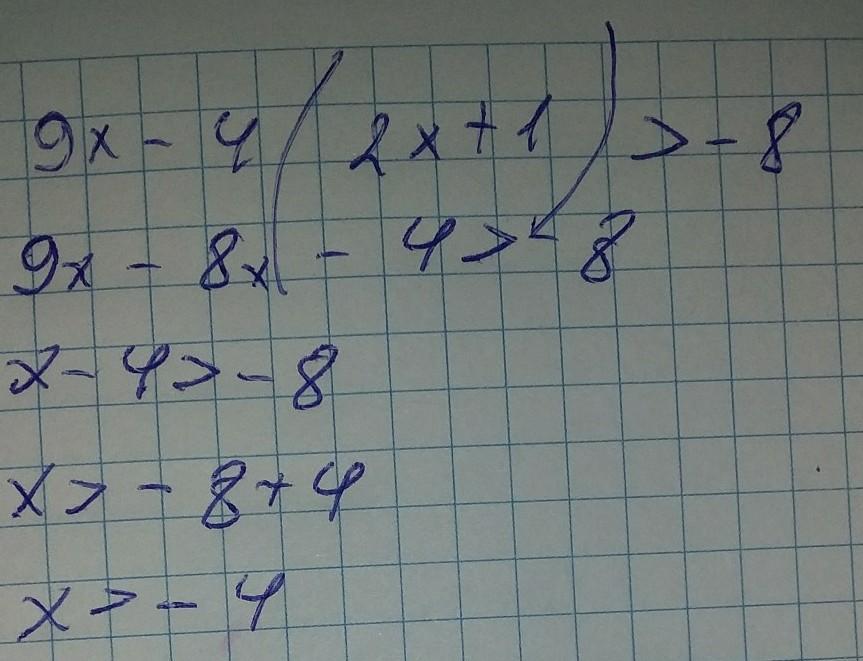 9x - 4(2x+1) > -8
9x - 8x - 4 > -8
x - 4 > -8
x > -8+4
x > -4